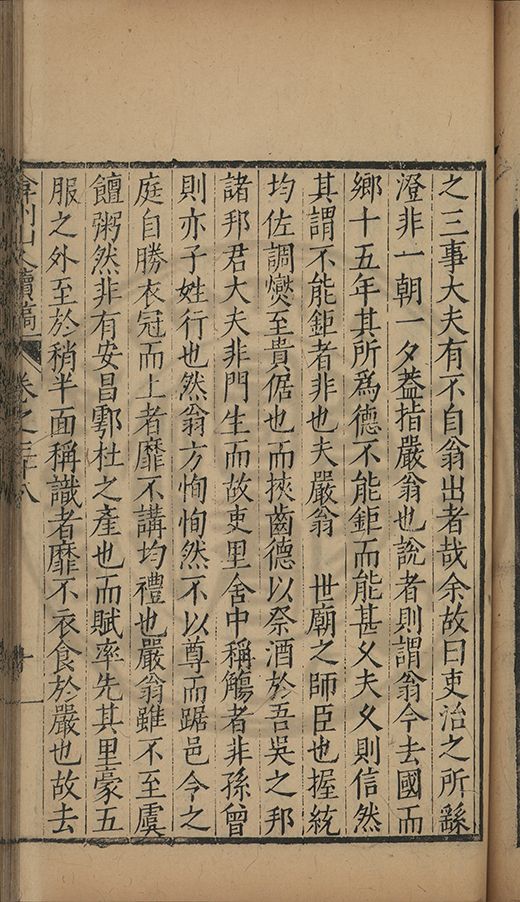 之三事大夫有不自翁出者哉余故曰吏治之所繇
澄非一朝一夕葢指嚴翁也說者則謂翁今去國而
鄉十五年其所爲德不能鉅而能甚夊夫夊則信然
其謂不能鉅者非也夫嚴翁　世廟之師臣也握統
均佐調爕至貴倨也而挾齒德以祭酒於吾吳之邦
諸邦君大夫非門生而故吏里舍中稱觴者非孫曾
則亦子姓行也然翁方恂恂然不以尊而踞邑令之
庭自勝衣冠而上者靡不講均禮也嚴翁雖不至虞
饘粥然非有安昌鄠杜之產也而賦率先其里豪五
服之外至於稍半面稱識者靡不衣食於嚴也故去
弇州山人續稿　卷之三十八